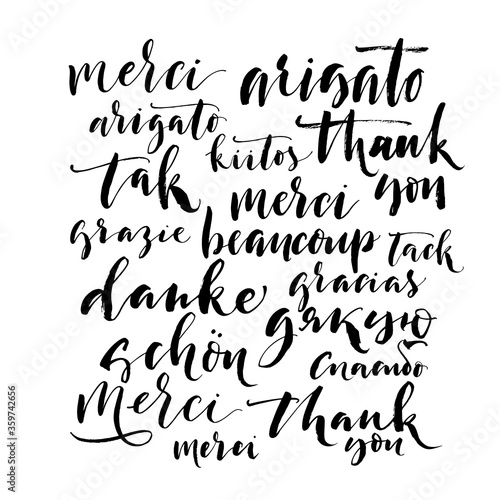 merci arigato
arigato
kiitos thank
tak merci you
grazie beaucoup tack
danke gracias
дякую
schön спасибо
Merci thank
merci you
Adobe Stock | #359742656